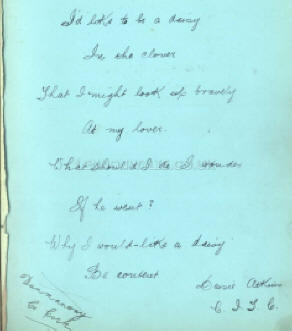 I'd like to be a daisy
In the clover
That I might look up bravely
At my lover.
What should I do I wonder
If he went?
Why I would like a daisy
Be content
Atkins
C. I. T. C.
Co Cork